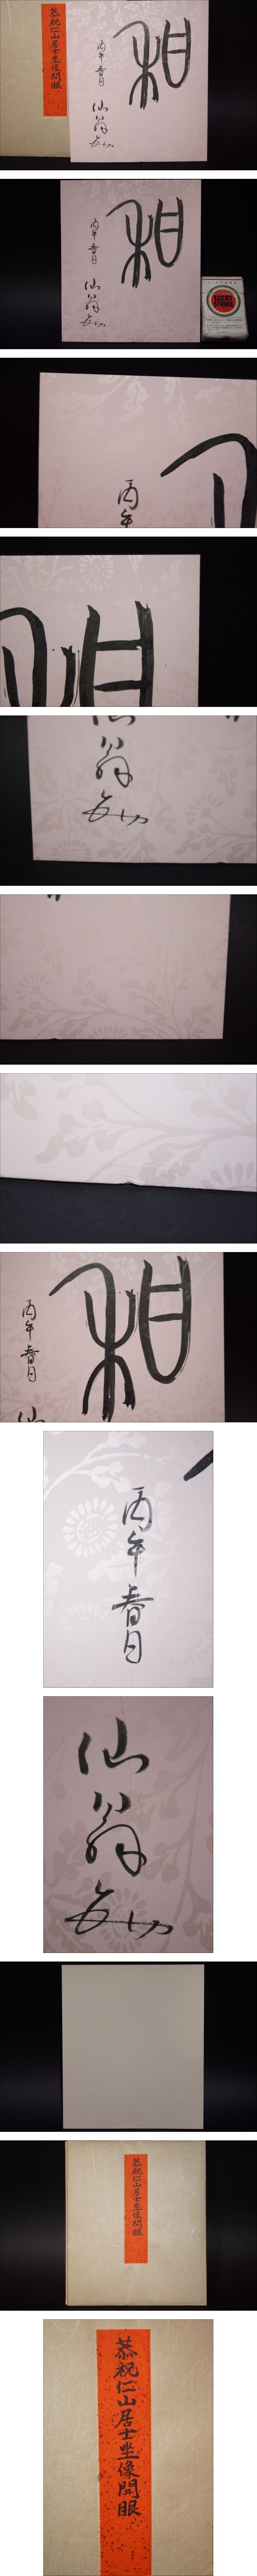 和
丙午春日
仙翁
恭祝仁山居士坐像開眼
和
丙午春日
仙翁
LUCKY
STRIKE
丙午
仙翁
和
丙午春日
仙
丙午春日
仙翁
恭祝仁山居士坐像開眼
恭祝仁山居士坐像開眼